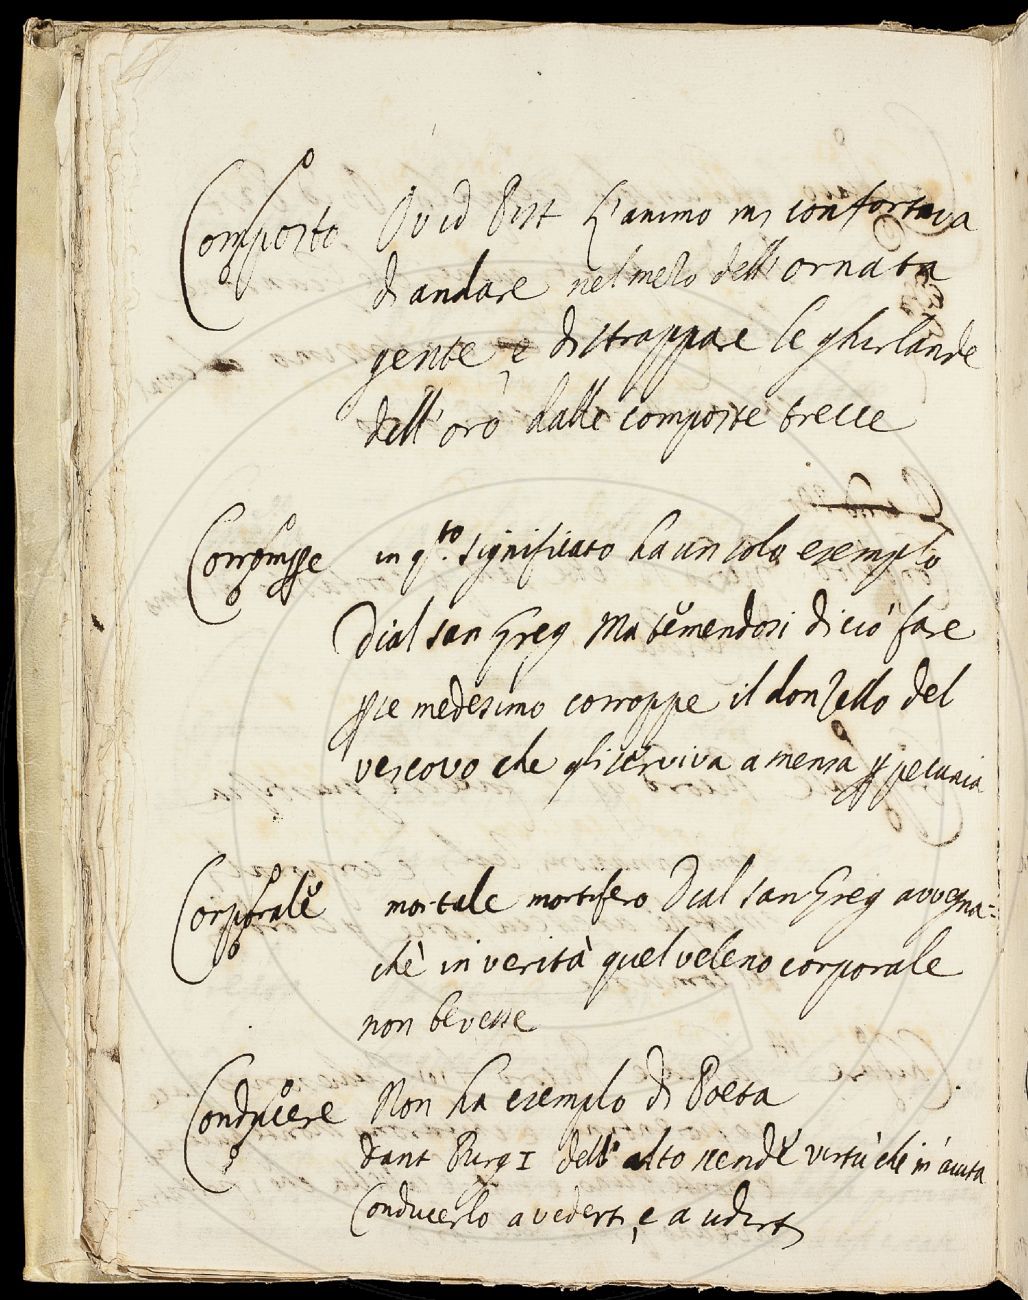 Composto Ovid Pist L'animo mi confortava
di andare nel mezo dell'ornata
gente e di strappare le ghirlande
dell'oro dalle composte trecce
Corrompere in q.to significato ha un solo esemplo
Dial san Greg Ma temendosi di ciò fare
p se medesimo corroppe il donzello del
vescovo che gli serviva a mensa p pecunia
Corporale mortale mortifero Dial san Greg avvegna=
chè in verità quel veleno corporale
non bevesse
Conducere Non ha esemplo di Poeta
Dant Purg I dell'alto scende virtù che m'aiuta
Conducerlo a vederti, e a udirti